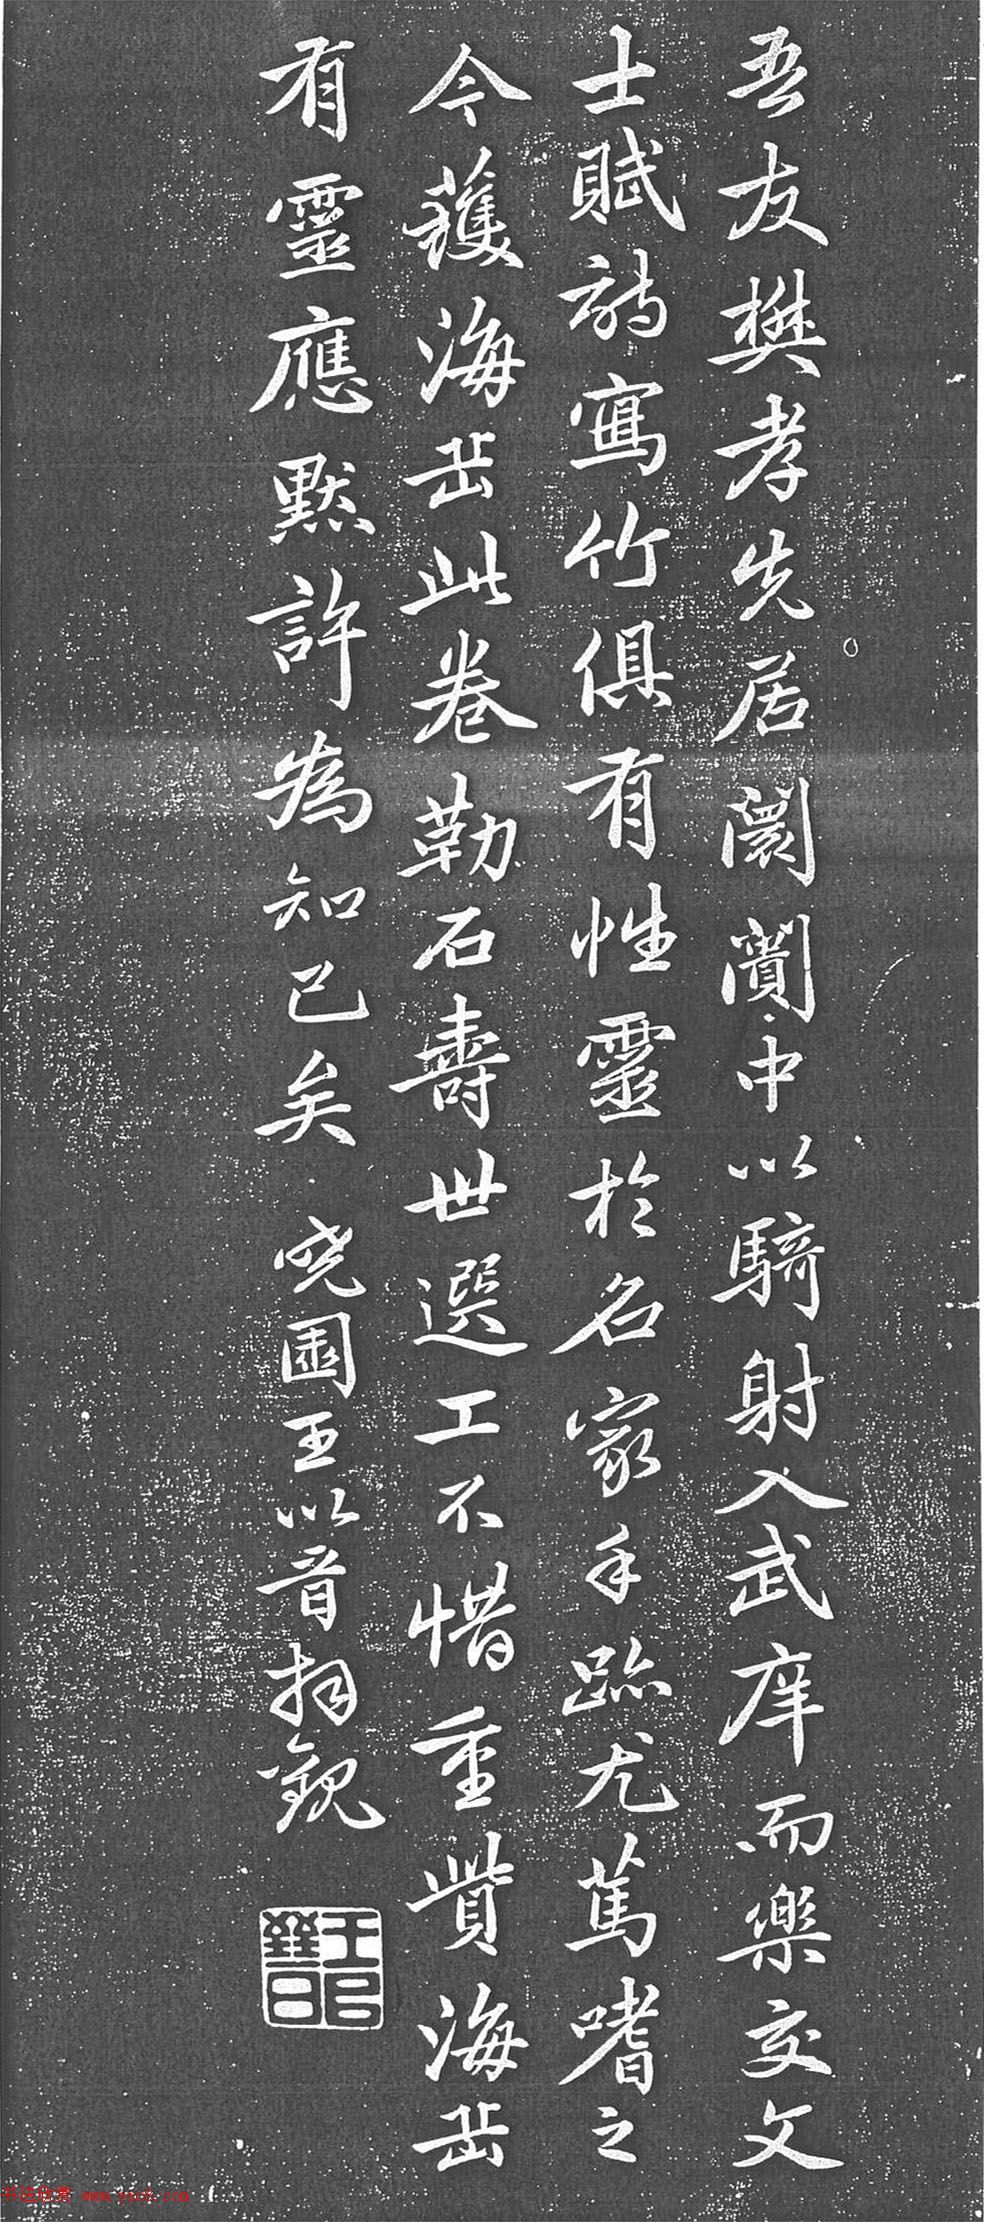 吾友樊孝先居闤闠中以騎射入武庠而樂交文
士賦詩寫竹俱有性靈於名家手跡尤篤嗜之
今獲海岳此卷勒石壽世選工不惜重貲海岳
有靈應默許為知己矣 曉園王以晉拜觀
书法欣赏 www.yac8.com